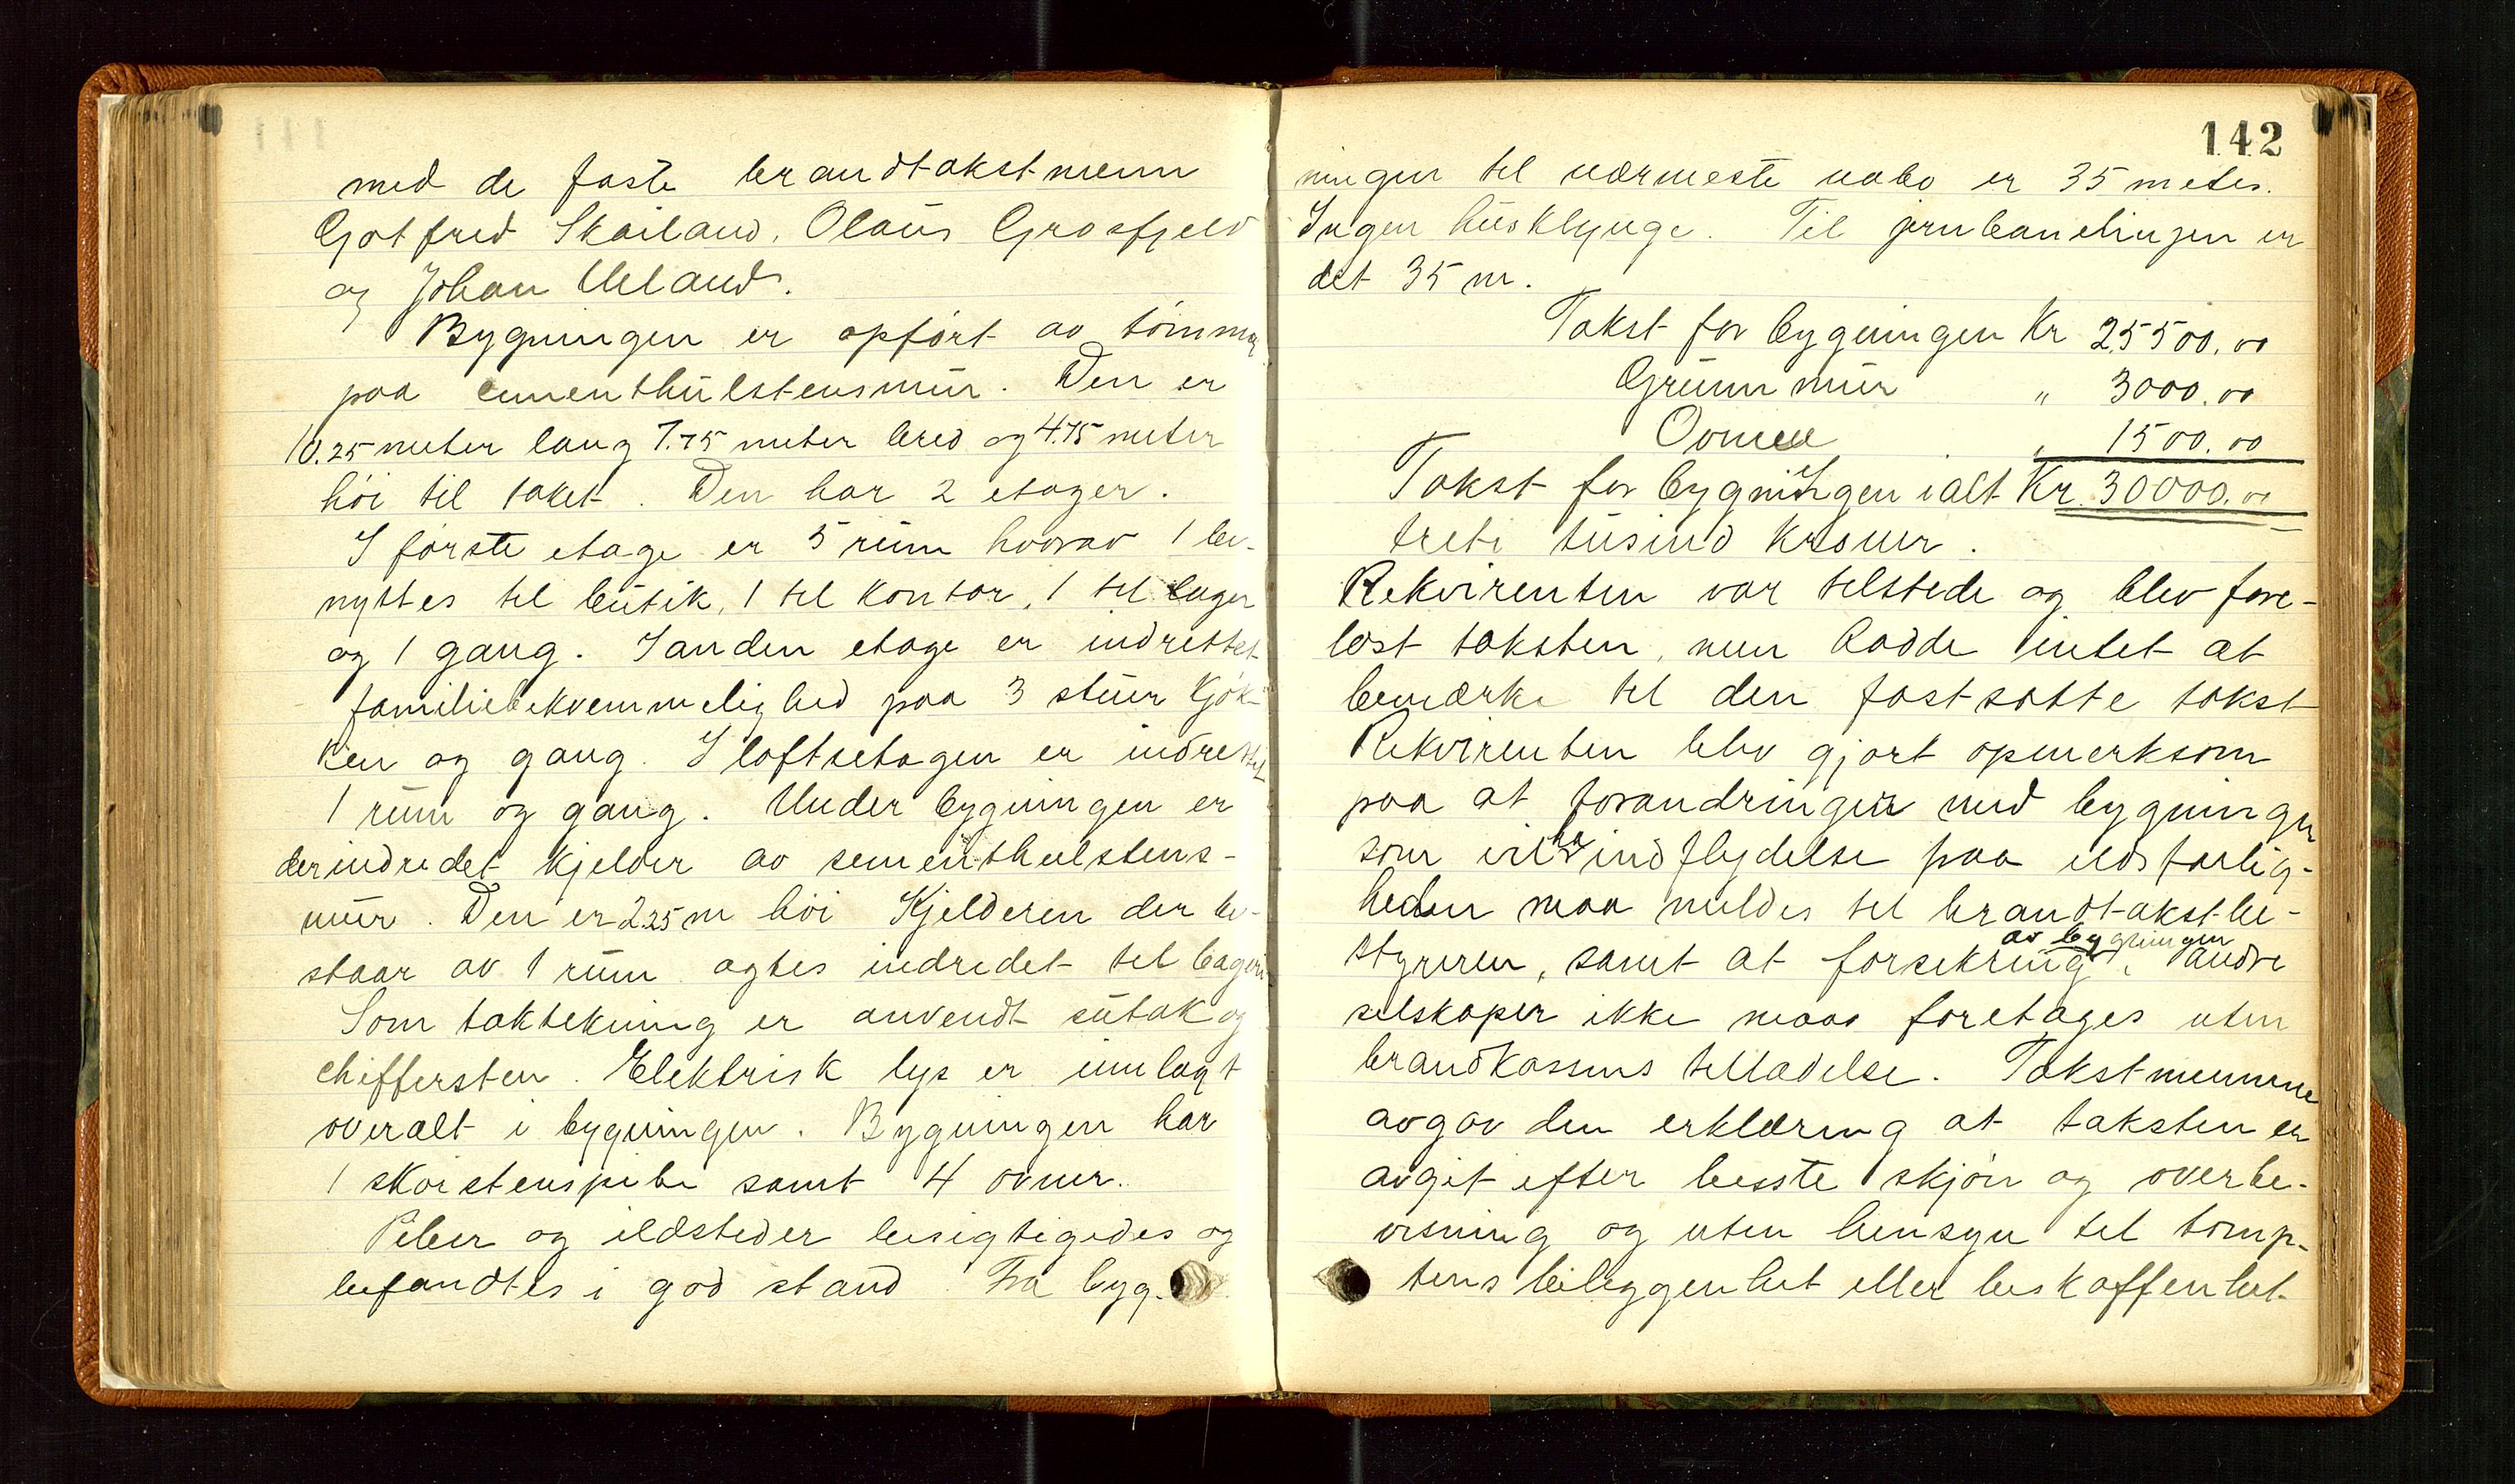 med de faste brandtakstmenn
Gotfred Skailand, Olaus Grosfjeld
og Johan Ueland.
Bygningen er opført av tømmer
paa cementhulstensmur. Den er
10.25 meter lang 7.75 meter bred og 4.75 meter
høi til taket. Den har 2 etager.
I første etage er 5 rum hvorav 1 be-
nyttes til butik, 1 til kontor, 1 til lager
og 1 gang. I anden etage er indrettet
familiebekvemmelighed paa 3 stuer kjøk-
ken og gang. I loftsetagen er indrettet
1 rum og gang. Under bygningen er
der indredet kjelder av sementhulstens-
mur. Den er 2.25 m høi Kjelderen der be-
staar av 1 rum agtes indredet til bageri
Som taktekning er anvendt sutak og
chiffersten. Elektrisk lys er innlagt
overalt i bygningen. Bygningen har
1 skorstenspibe samt 4 ovner.
Piber og ildsteder besigtigedes og
befandtes i god stand. Fra byg-
142
ningen til nærmeste nabo er 35 meter.
Ingen husklynge. Til jernbanelinjen er
det 35 m.
Takst for bygningen Kr 25500.00
Grunnmur " 3000.00
Ovnene " 1500.00
Takst for bygningen ialt Kr. 30000.00
treti tusind kroner.
Rekvirenten var tilstede og blev fore-
læst taksten, men hadde intet at
bemærke til den fastsatte takst
Rekvirenten blev gjort opmerksom
paa at forandringer med bygningen
som vil ha indflydelse paa ildsfarlig-
heden maa meldes til brandtakstbe-
av bygningen
styreren, samt at forsekring i andre
selskaper ikke maaa foretages uten
brandkassens tilladelse. Takstmennene
avgav den erklæring at taksten er
avgit efter besste skjøn og overbe-
visning og uten hensyn til tomp-
tens beliggenhet eller beskaffenhet